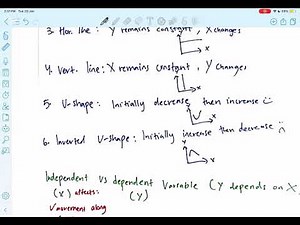 3. Hor. line : Y remains constant, X changes
X
4. Vert. line: X remains constant, Y changes
X
5. U-shape: Initially decrease then increase
X
6. Inverted U-shape: Initially increase then decrease
Y
X
Independent vs dependent Variable (Y depends on X
(X) affects: (Y)
movement along